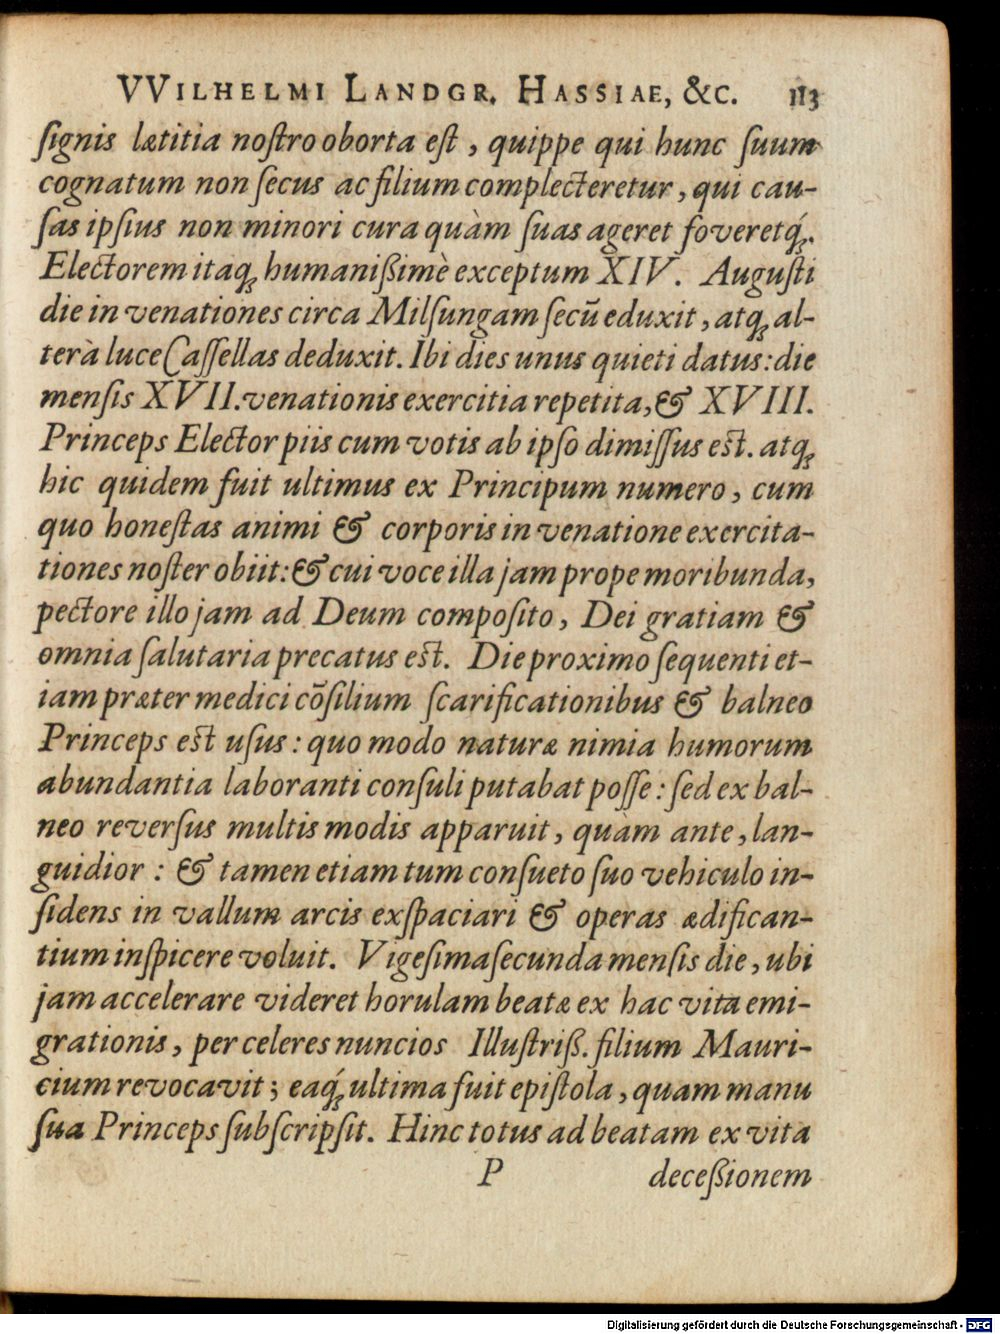 VVILHELMI LANDGR. HASSIAE, &C. 113
ſignis lætitia noſtro oborta eſt, quippe qui hunc ſuum
cognatum non ſecus ac filium complecteretur, qui cau-
ſas ipſius non minori cura quàm ſuas ageret foveretq́;.
Electorem itaq; humanißimè exceptum XIV. Auguſti
die in venationes circa Milſungam ſecũ eduxit, atq; al-
terà luce Caſſellas deduxit. Ibi dies unus quieti datus: die
menſis XVII. venationis exercitia repetita, & XVIII.
Princeps Elector piis cum votis ab ipſo dimiſſus eſt. atq;
hic quidem fuit ultimus ex Principum numero, cum
quo honeſtas animi & corporis in venatione exercita-
tiones noſter obiit: & cui voce illa jam prope moribunda,
pectore illo jam ad Deum compoſito, Dei gratiam &
omnia ſalutaria precatus eſt. Die proximo ſequenti et-
iam præter medici cõſilium ſcarificationibus & balneo
Princeps eſt uſus: quo modo naturæ nimia humorum
abundantia laboranti conſuli putabat poſſe: ſed ex bal-
neo reverſus multis modis apparuit, quàm ante, lan-
guidior: & tamen etiam tum conſueto ſuo vehiculo in-
ſidens in vallum arcis exſpaciari & operas ædifican-
tium inſpicere voluit. Vigeſimaſecunda menſis die, ubi
jam accelerare videret horulam beatæ ex hac vita emi-
grationis, per celeres nuncios Illuſtriß. filium Mauri-
cium revocavit; eaq́; ultima fuit epiſtola, quam manu
ſua Princeps ſubſcripſit. Hinc totus ad beatam ex vita
P deceßionem
Digitalisierung gefördert durch die Deutsche Forschungsgemeinschaft - DFG